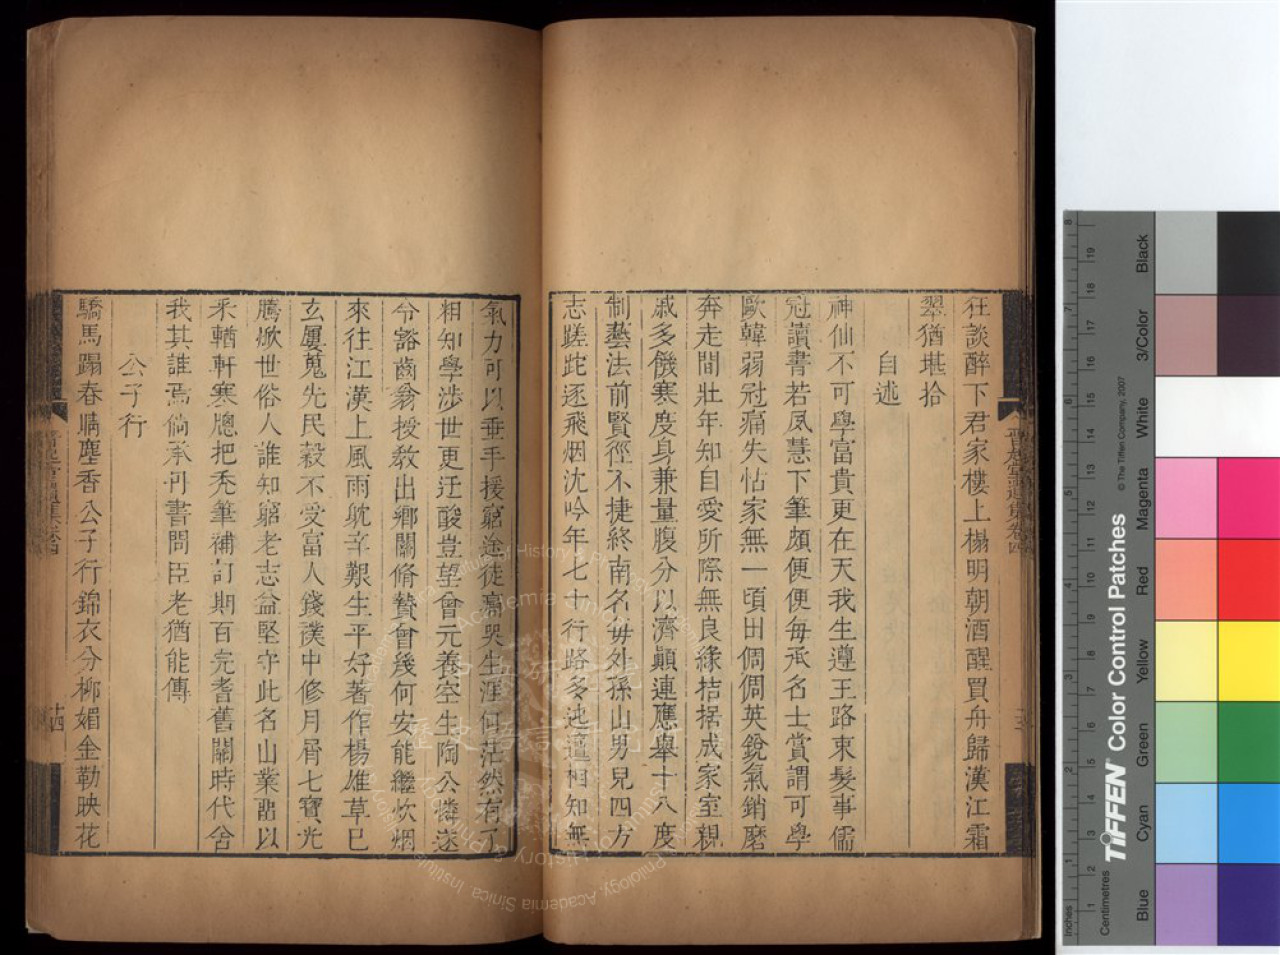 狂談醉下君家樓上榻明朝酒醒買舟歸漢江霜
翠猶堪拾
自述
神仙不可學富貴更在天我生遵王路束髮事儒
冠讀書若夙慧下筆頗便便每承名士賞謂可學
歐韓弱冠痛失怙家無一頃田倜倜英銳氣銷磨
奔走間壯年知自愛所際無良緣拮据成家室親
戚多饑寒度身兼量腹分以濟顛連應舉十八度
制藝法前賢徑不捷終南名每外孫山男兒四方
志蹉跎逐飛烟沈吟年七十行路多迍邅相知無
氣力可以垂手援窮途徒高哭生涯何茫然有子
粗知學涉世更迂酸豈望曾元養空生陶公憐遂
令豁齒翁授教出鄉關脩贄曾幾何安能繼炊烟
來往江漢上風雨耽辛艱生平好著作楊雄草已
玄屢蒐先民穀不受富人錢襆中修月屑七寶光
騰燉世俗人誰知窮老志益堅守此名山業詔以
采輶軒寒牕把禿筆補訂期百完耆舊關時代舍
我其誰焉倘承刋書問臣老猶能傳
公子行
驕馬蹋春驕塵香公子行錦衣分柳媚金勒映花
卷四
Black
3/Color
White
Magenta
Red
Yellow
Green
Cyan
Blue
TIFFEN Color Control Patches
© The Tiffen Company, 2007
Centimetres
Inches